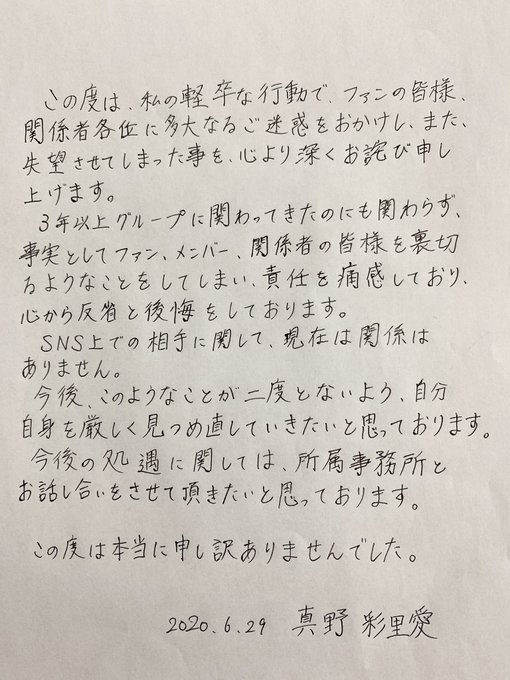 この度は、私の軽卒な行動で、ファンの皆様、
関係者各位に多大なるご迷惑をおかけし、また、
失望させてしまった事を、心より深くお詫び申し
上げます。
3年以上グループに関わってきたのにも関わらず、
事実としてファン、メンバー、関係者の皆様を裏切
るようなことをしてしまい、責任を痛感しており、
心から反省と後悔をしております。
SNS上での相手に関して、現在は関係は
ありません。
今後、このようなことが二度とないよう、自分
自身を厳しく見つめ直していきたいと思っております。
今後の処遇に関しては、所属事務所と
お話し合いをさせて頂きたいと思っております。
この度は本当に申し訳ありませんでした。
2020.6.29 真野 彩里愛